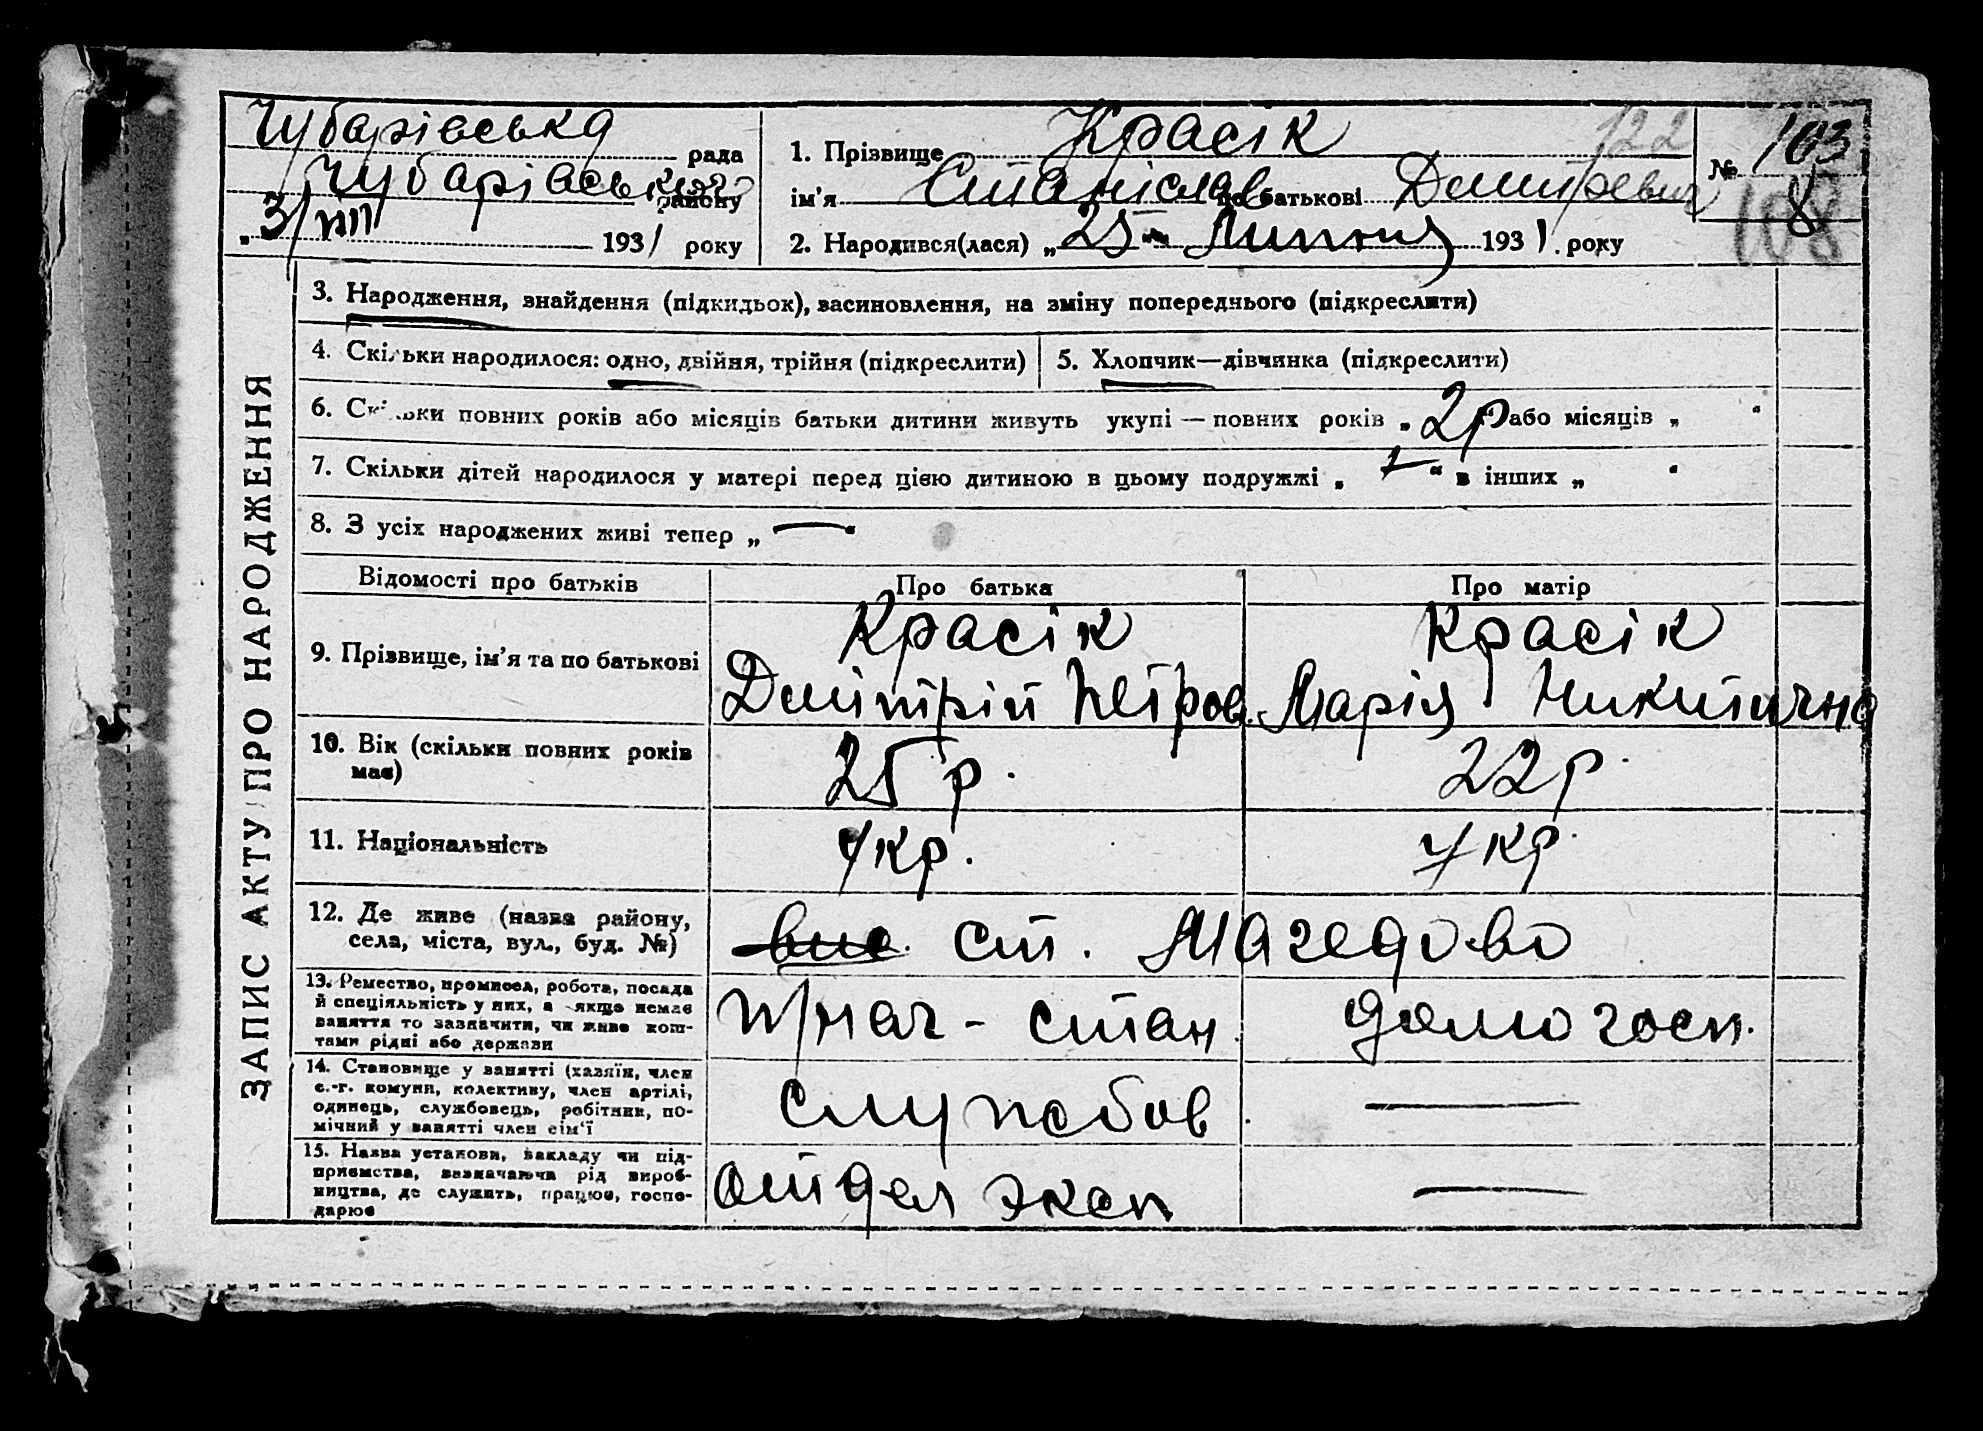 Чубарівська рада
Чубарівського району
„3/VIII 1931 року
1. Прізвище Красік
122
ім'я Станіслав по батькові Дмитрєвич
2. Народився(лася) „25" Липня 1931. року
№ 103
8
108
ЗАПИС АКТУ ПРО НАРОДЖЕННЯ
3. Народження, знайдення (підкидьок), засиновлення, на зміну попереднього (підкреслити)
4. Скільки народилося: одно, двійня, трійня (підкреслити)
5. Хлопчик—дівчинка (підкреслити)
6. Скільки повних років або місяців батьки дитини живуть укупі — повних років „2р" або місяців „ "
7. Скільки дітей народилося у матері перед цією дитиною в цьому подружжі „ " в інших „ "
8. З усіх народжених живі тепер „ — "
Відомості про батьків Про батька Про матір
9. Прізвище, ім'я та по батькові
Красік
Дмітрій Петров.
Красік
Марія Никитична
10. Вік (скільки повних років
має)
25 р.
22 р.
11. Національність
Укр.
Укр.
12. Де живе (назва району,
села, міста, вул., буд. №)
ст. Магедово
13. Ремество, промисел, робота, посада
й спеціяльність у них, а якщо немає
заняття то зазначити, чи живе кош-
тами рідні або держави
п/нач - стан.
домогосп.
14. Становище у занятті (хазяїн, член
с.-г. комуни, колективу, член артілі,
одинець, службовець, робітник, по-
мічний у занятті член сім'ї
службов.
—
15. Назва установи, закладу чи під-
приємства, зазначаючи рід вироб-
ництва, де служить, працює, госпо-
дарює
отдел эксп
—